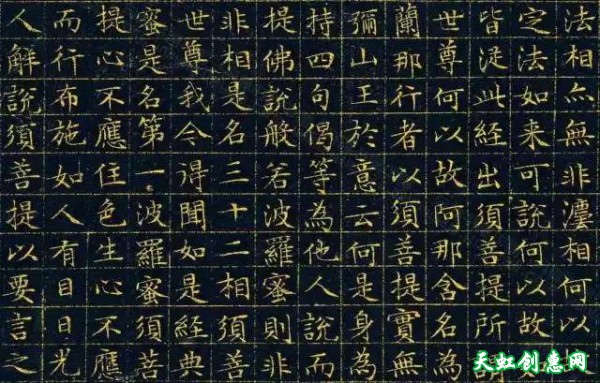 法相亦無非灋相何以
定法如来可說何以故
皆從此經出須善提所
世尊何以故阿那含名為
蘭那行者以須善提實無
彌山王於意云何是身為
持四句偈等為他人說而
提佛說般若波羅蜜則非
非相是名三十二相須善
世尊我今得聞如是經典
蜜是名第一波羅蜜須菩
提心不應住色生心不應
而行布施如人有目日光
人解說須善提以要言之
天虹创意网